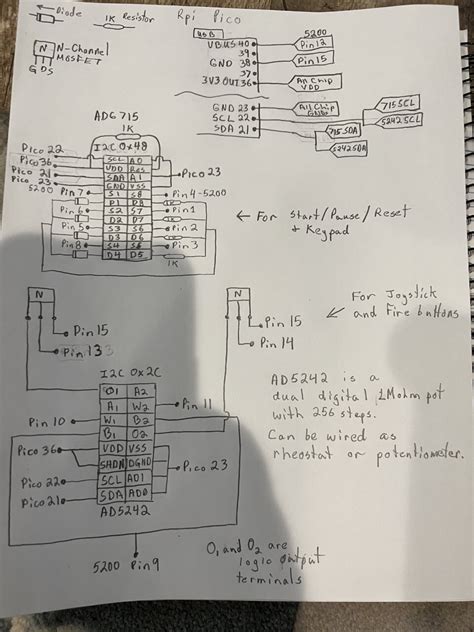 Diode
1K Resistor
Rpi Pico
N
N-Channel
MOSFET
G D S
USB
VBUS 40
39
GND 38
37
3V3 OUT 36
5200
Pin 12
Pin 15
All Chip
VDD
GND 23
SCL 22
SDA 21
All Chip
GNDs
715 SCL
5242 SCL
715 SDA
5242 SDA
ADG 715
1K
I2C 0x48
Pico 22
Pico 36
Pico 21
Pico 23
5200
SCL A0
VDD Res
SDA A1
GND VSS
S1 S8
D1 D8
S2 S7
D2 D7
S3 S6
D3 D6
S4 S5
D4 D5
Pico 23
Pin 7
Pin 6
Pin 5
Pin 8
Pin 4-5200
Pin 1
Pin 2
Pin 3
1K
← For Start/Pause/Reset
+ Keypad
N
Pin 15
Pin 13
N
Pin 15
Pin 14
For Joystick
← and Fire buttons
I2C 0x2C
O1 A2
A1 W2
W1 B2
B1 O2
VDD VSS
SHDN DGND
SCL AD1
SDA AD0
AD5242
Pin 11
Pin 10
Pico 36
Pico 22
Pico 21
Pico 23
AD5242 is a
dual digital 1Mohm pot
with 256 steps.
Can be wired as
rheostat or potentiometer.
5200 Pin 9
O1 and O2 are
logic output
terminals